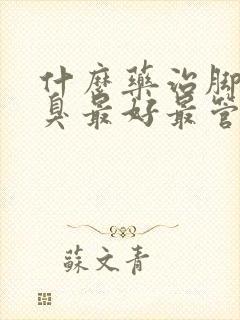 什麼藥治腳
臭最好最管
蘇文青